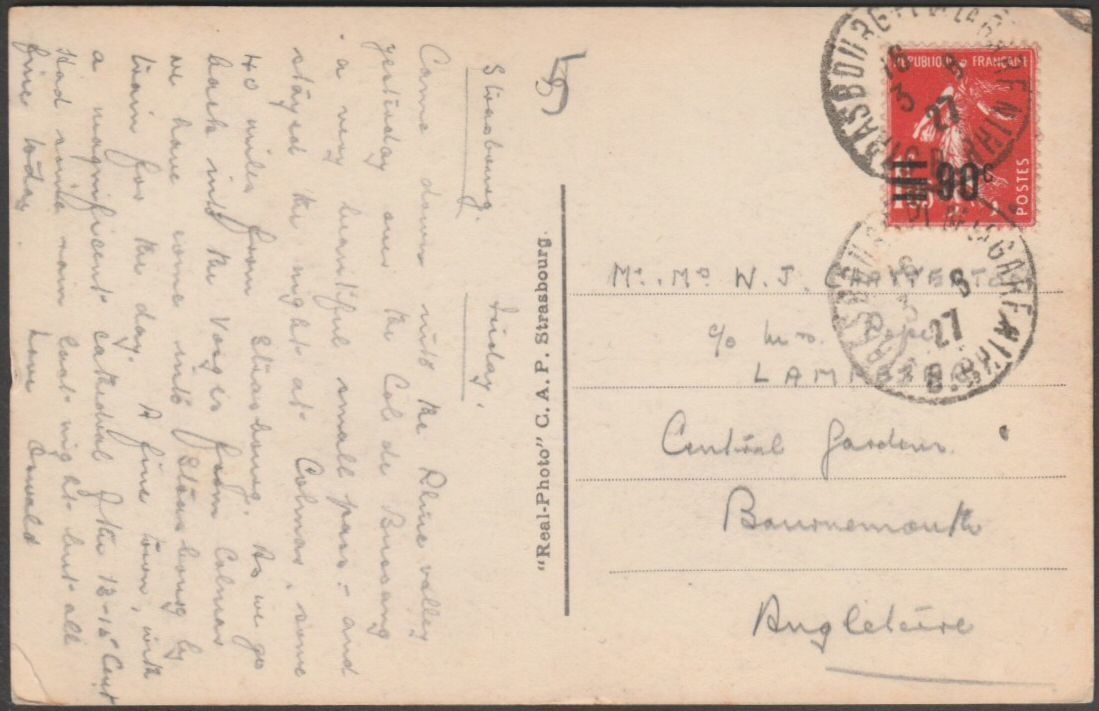 Strasbourg. Friday.
Came down into the Rhine valley
yesterday over the Col de Bussang
- a very beautiful small pass - and
stayed the night at Colmar, some
40 miles from Strasbourg. As we go
back into the Vosges from Colmar
we have come into Strasbourg by
train for the day. A fine town, with
a magnificent cathedral of the 13-15 Cent
Had some rain last night but all
fine today
Love Oswald
"Real-Photo" C. A. P. Strasbourg.
REPUBLIQUE FRANÇAISE
90c
POSTES
STRASBOURG
GARE
16
3 8
27
STRASBOURG
GARE
16
3 8
27
Mr. Ms W. J.
c/o Mrs. Pope
Central Gardens.
Bournemouth
Angleterre